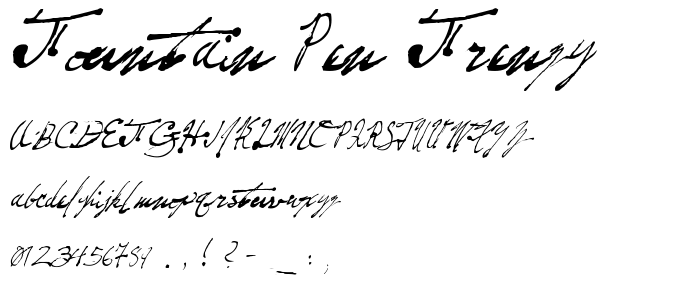 Fountain Pen Frenzy
ABCDEFGHIJKLMNOPQRSTUVWXYZ
abcdefghijklmnopqrstuvwxyz
0123456789 . , ! ? - _ : ,